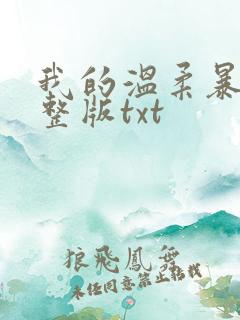 我的温柔暴
整版txt
狼飛鳳舞
未经同意禁止转载